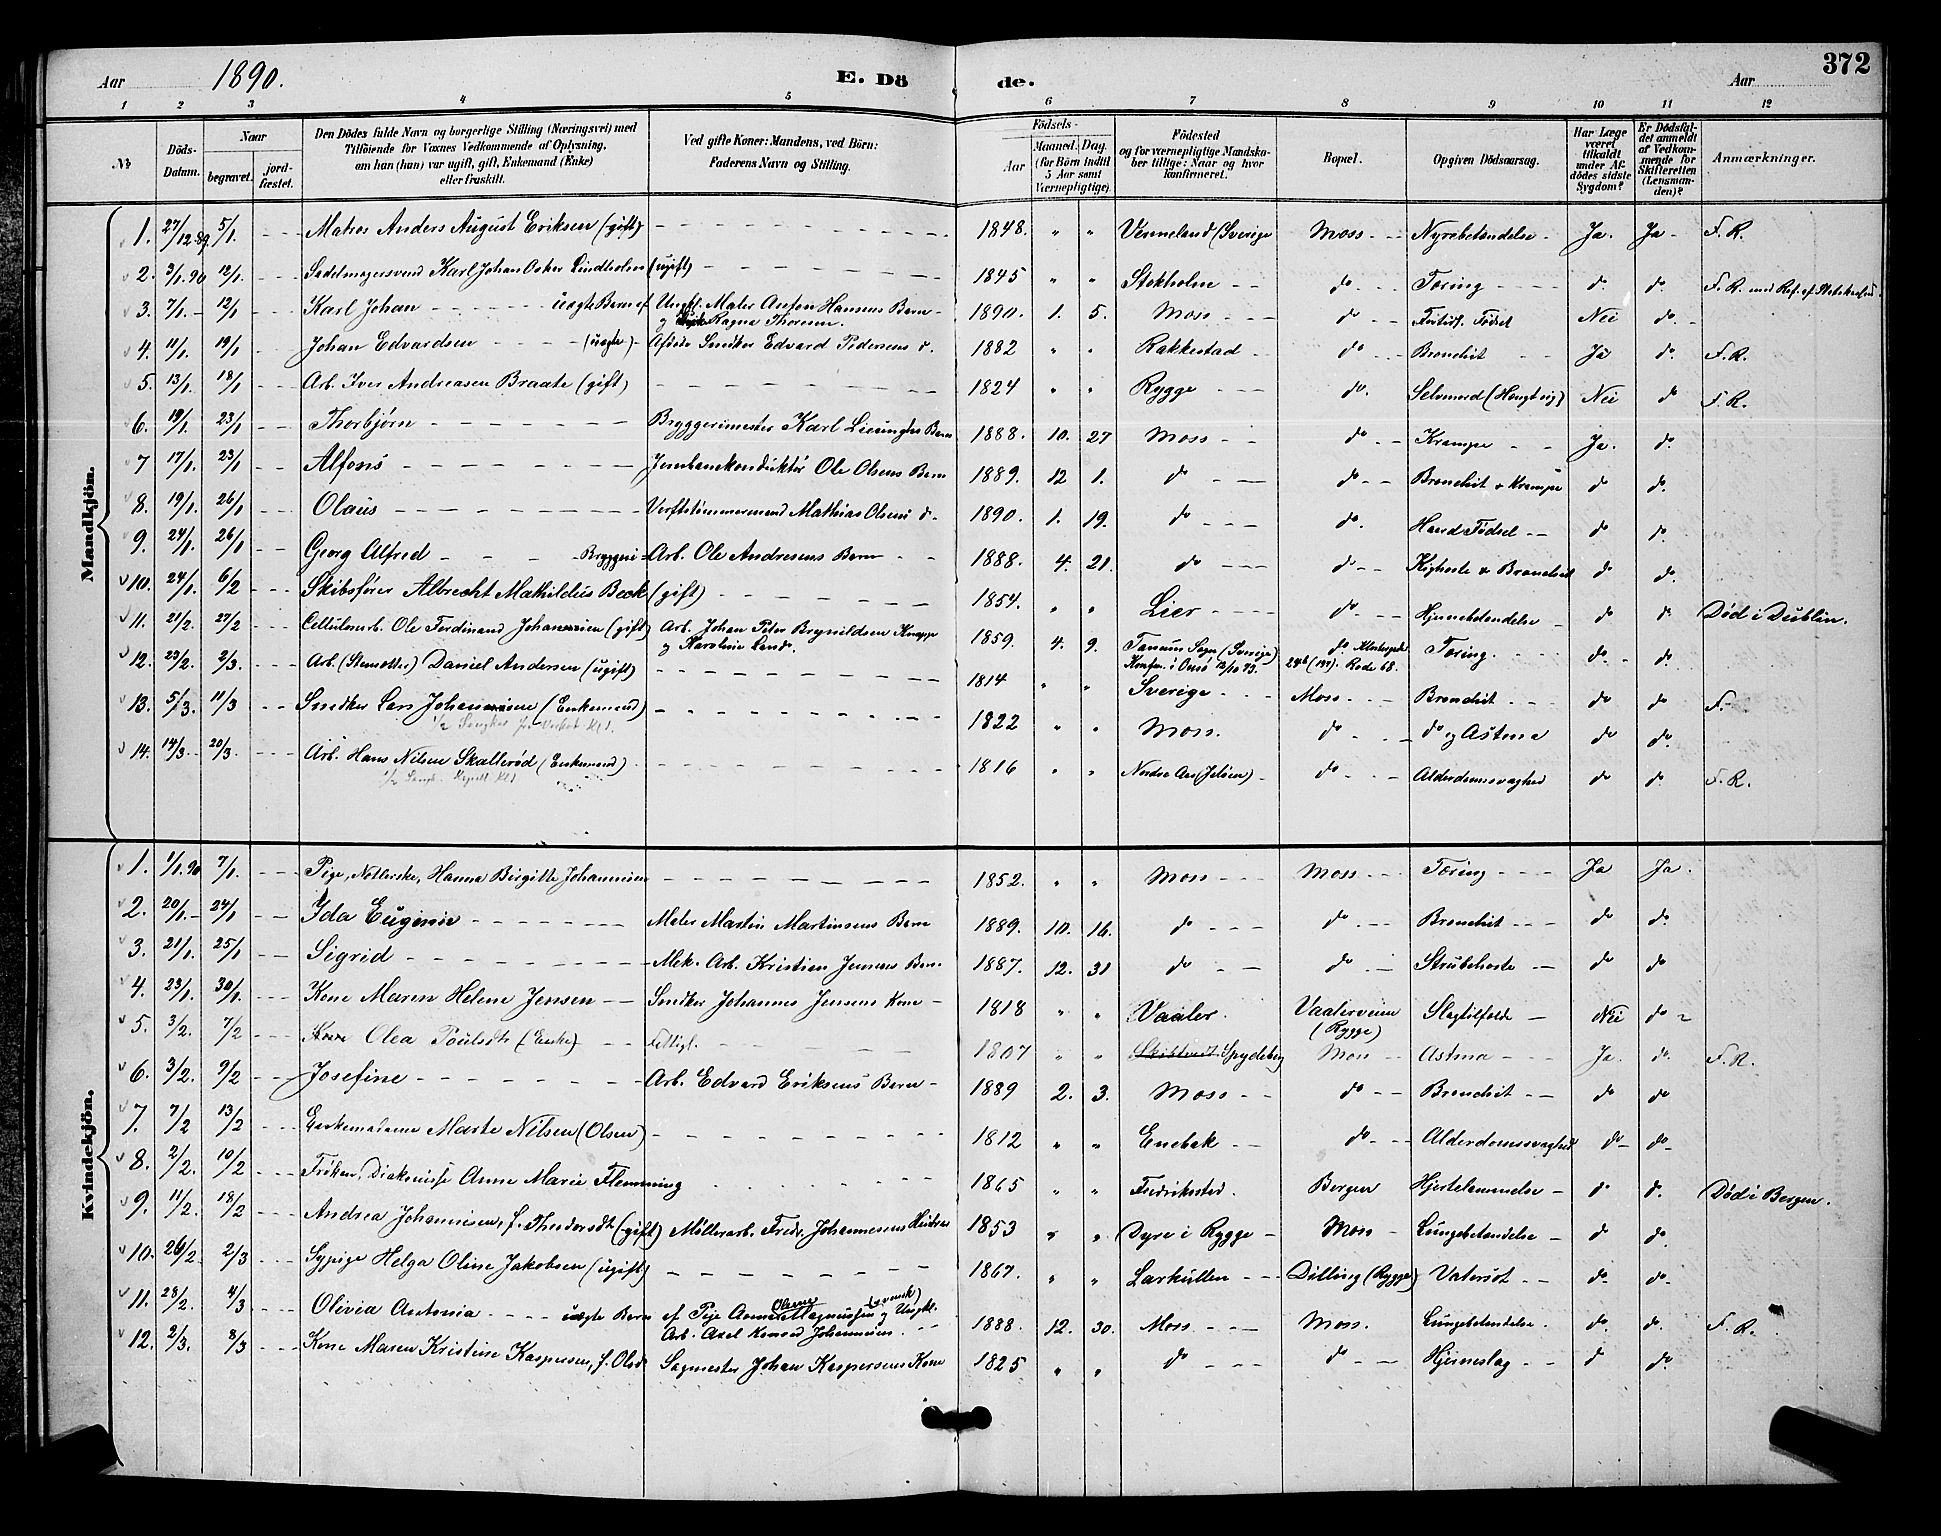 Aar 1890. E. Dö de. Aar 372
1 2 3 4 5 6 7 8 9 10 11 12
No
Döds-Datum.
Naar
begravet. jord-fæstet.
Den Dödes fulde Navn og borgerlige Stilling (Næringsvei) med
Tilföiende for Voxnes Vedkommende af Oplysning,
om han (hun) var ugift, gift, Enkemand (Enke)
eller fraskilt.
Ved gifte Koner: Mandens, ved Börn:
Faderens Navn og Stilling.
Födsels-
Aar Maaned. Dag.
(for Börn indtil
5 Aar samt
Værnepligtige).
Födested
og for værnepligtige Mandska-
ber tillige: Naar og hvor
konfirmeret.
Bopæl.
Opgiven Dödsaarsag.
Har Læge
været
tilkaldt
under Af-
dödes sidste
Sygdom?
Er Dödsfal-
det anmeldt
af Vedkom-
mende for
Skifteretten
(Lensman-
den)?
Anmærkninger.
Mandkjön.
1. 27/12 89 5/1. Matros Anders August Eriksen (gift) 1848. " " Venneland (Sverige Moss Nyrebetændelse Ja. Ja F. R.
2. 3/1. 90 12/1. Sadelmagersvend Karl Johan Oskar Lindholm (ugift) 1845 " " Stokholm do Tæring do do. F. R. med Ref. af Statskassen.
3. 7/1. 12/1. Karl Johan uægte Barn af Ungk. Maler Anton Hansens Barn 1890. 1. 5. Moss do Fortids. Födsel Nei do.
og Ragna Thoresen.
4. 11/1. 19/1 Johan Edvardsen (uægte) Afdøde Snedker Edvard Pedersens d. 1882 " " Rakkestad do Bronchit Ja do. F. R.
5. 13/1. 18/1 Arb. Iver Andreasen Braate (gift) 1824 " " Rygge do. Selvmord (Hængt sig) Nei do F. R.
6. 19/1. 23/1 Thorbjørn Bryggerimester Karl Barn 1888. 10. 27 Moss do Krampe Ja. do.
7 17/1. 23/1 Alfons Jernbanekonduktør Ole Olsens Barn 1889. 12 1. do do Bronchit & Krampe do do.
8. 19/1. 26/1 Olaus Verftstømmermand Mathias Olsens d. 1890. 1. 19. do do. Haard Födsel do do.
9. 24/1. 26/1 Georg Alfred Bryggeri-Arb. Ole Andresens Barn 1888. 4. 21. do do Kighoste & Bronchit do do.
10. 24/1. 6/2 Skibsfører Albrecht Mathildus Beck (gift) 1854. " " Lier do Hjernebetændelse do do Død i Dublin.
11. 21/2. 27/2 Cellulosearb. Ole Ferdinand Johannesen (gift) Arb. Johan Peter Brynildsen Knapp 1859. 4. 9. Tanum Sogn (Sverige) do Tæring. do. do.
og Karoline Landr. Konfirm. i Onsø 12/10 73. 246 (147). Rode 68.
12. 23/2. 2/3. Arb. (Stenotter) Daniel Andersen (ugift) 1814 " " Sverige Moss Bronchit do do F.
13. 5/3. 11/3 Snedker Lars Johannesen (Enkemand) 1822 " " Moss. do do og Astma do do.
14. 14/3 20/3. Arb. Hans Nilsen Skallerød (Enkemand) 1816 " " Nordre (Jeløen) do Alderdomssvaghed do do F. R.
Kvindekjön.
1. 1/1. 90 7/1. Pige, Hanna Birgitte Johannesen 1852. " " Moss Moss Tæring Ja Ja.
2. 20/1. 24/1 Ida Eugenie Maler Martin Martinsens Barn 1889. 10. 16. do do Bronchit do do.
3. 21/1. 25/1 Sigrid Mek. Arb. Kristian Jensens Barn 1887. 12. 31 do do Strubehoste do do
4. 23/1. 30/1. Kone Maren Helene Jensen Snedker Johannes Jensens Kone 1818 " " Vaaler. Vaalerveien Slagtilfælde Nei do
(Rygge)
5. 3/2. 7/2 Kone Olea Poulsdt. (Enke) Fattigl. 1807 " " Spydeberg Moss Astma Ja. do. F. R.
6. 3/2. 9/2 Josefine Arb. Edvard Eriksens Barn 1889 2. 3. Moss do Bronchit do do
7. 7/2 13/2 Enkemadame Marte Nilsen (Olsen) 1812 " " Enebak do Alderdomssvaghed do do
8. 2/2. 10/2 Frøken, Diakonisse Anne Marie Flemming 1865 " " Fredrikstad. Bergen Hjertelammelse do do. Død i Bergen.
9. 11/2. 18/2 Andrea Johannesen, f. Theodorsdt. (gift) Møllerarb. Fredr. Johannesens Hustru 1853 " " Dyre i Rygge Moss Lungebetændelse do do.
10. 26/2 2/3 Sypige Helga Oline Jakobsen (ugift) 1867. " " Larkullen Dilling (Rygge) Vatersot do. do.
11. 28/2. 4/3 Olivia Antonia uægte Barn af Pige Anne Oline Magnussen (svensk) og Ungkl. 1888. 12. 30. Moss Moss. Lungebetændelse. do. do. F. R.
Arb. Axel Konrad Johannesen.
12. 2/3. 8/3 Kone Maren Kristine Kaspersen, f. Olsdt. Sagmester Johan Kaspersens Kone 1825 " " do do Hjerneslag do do.